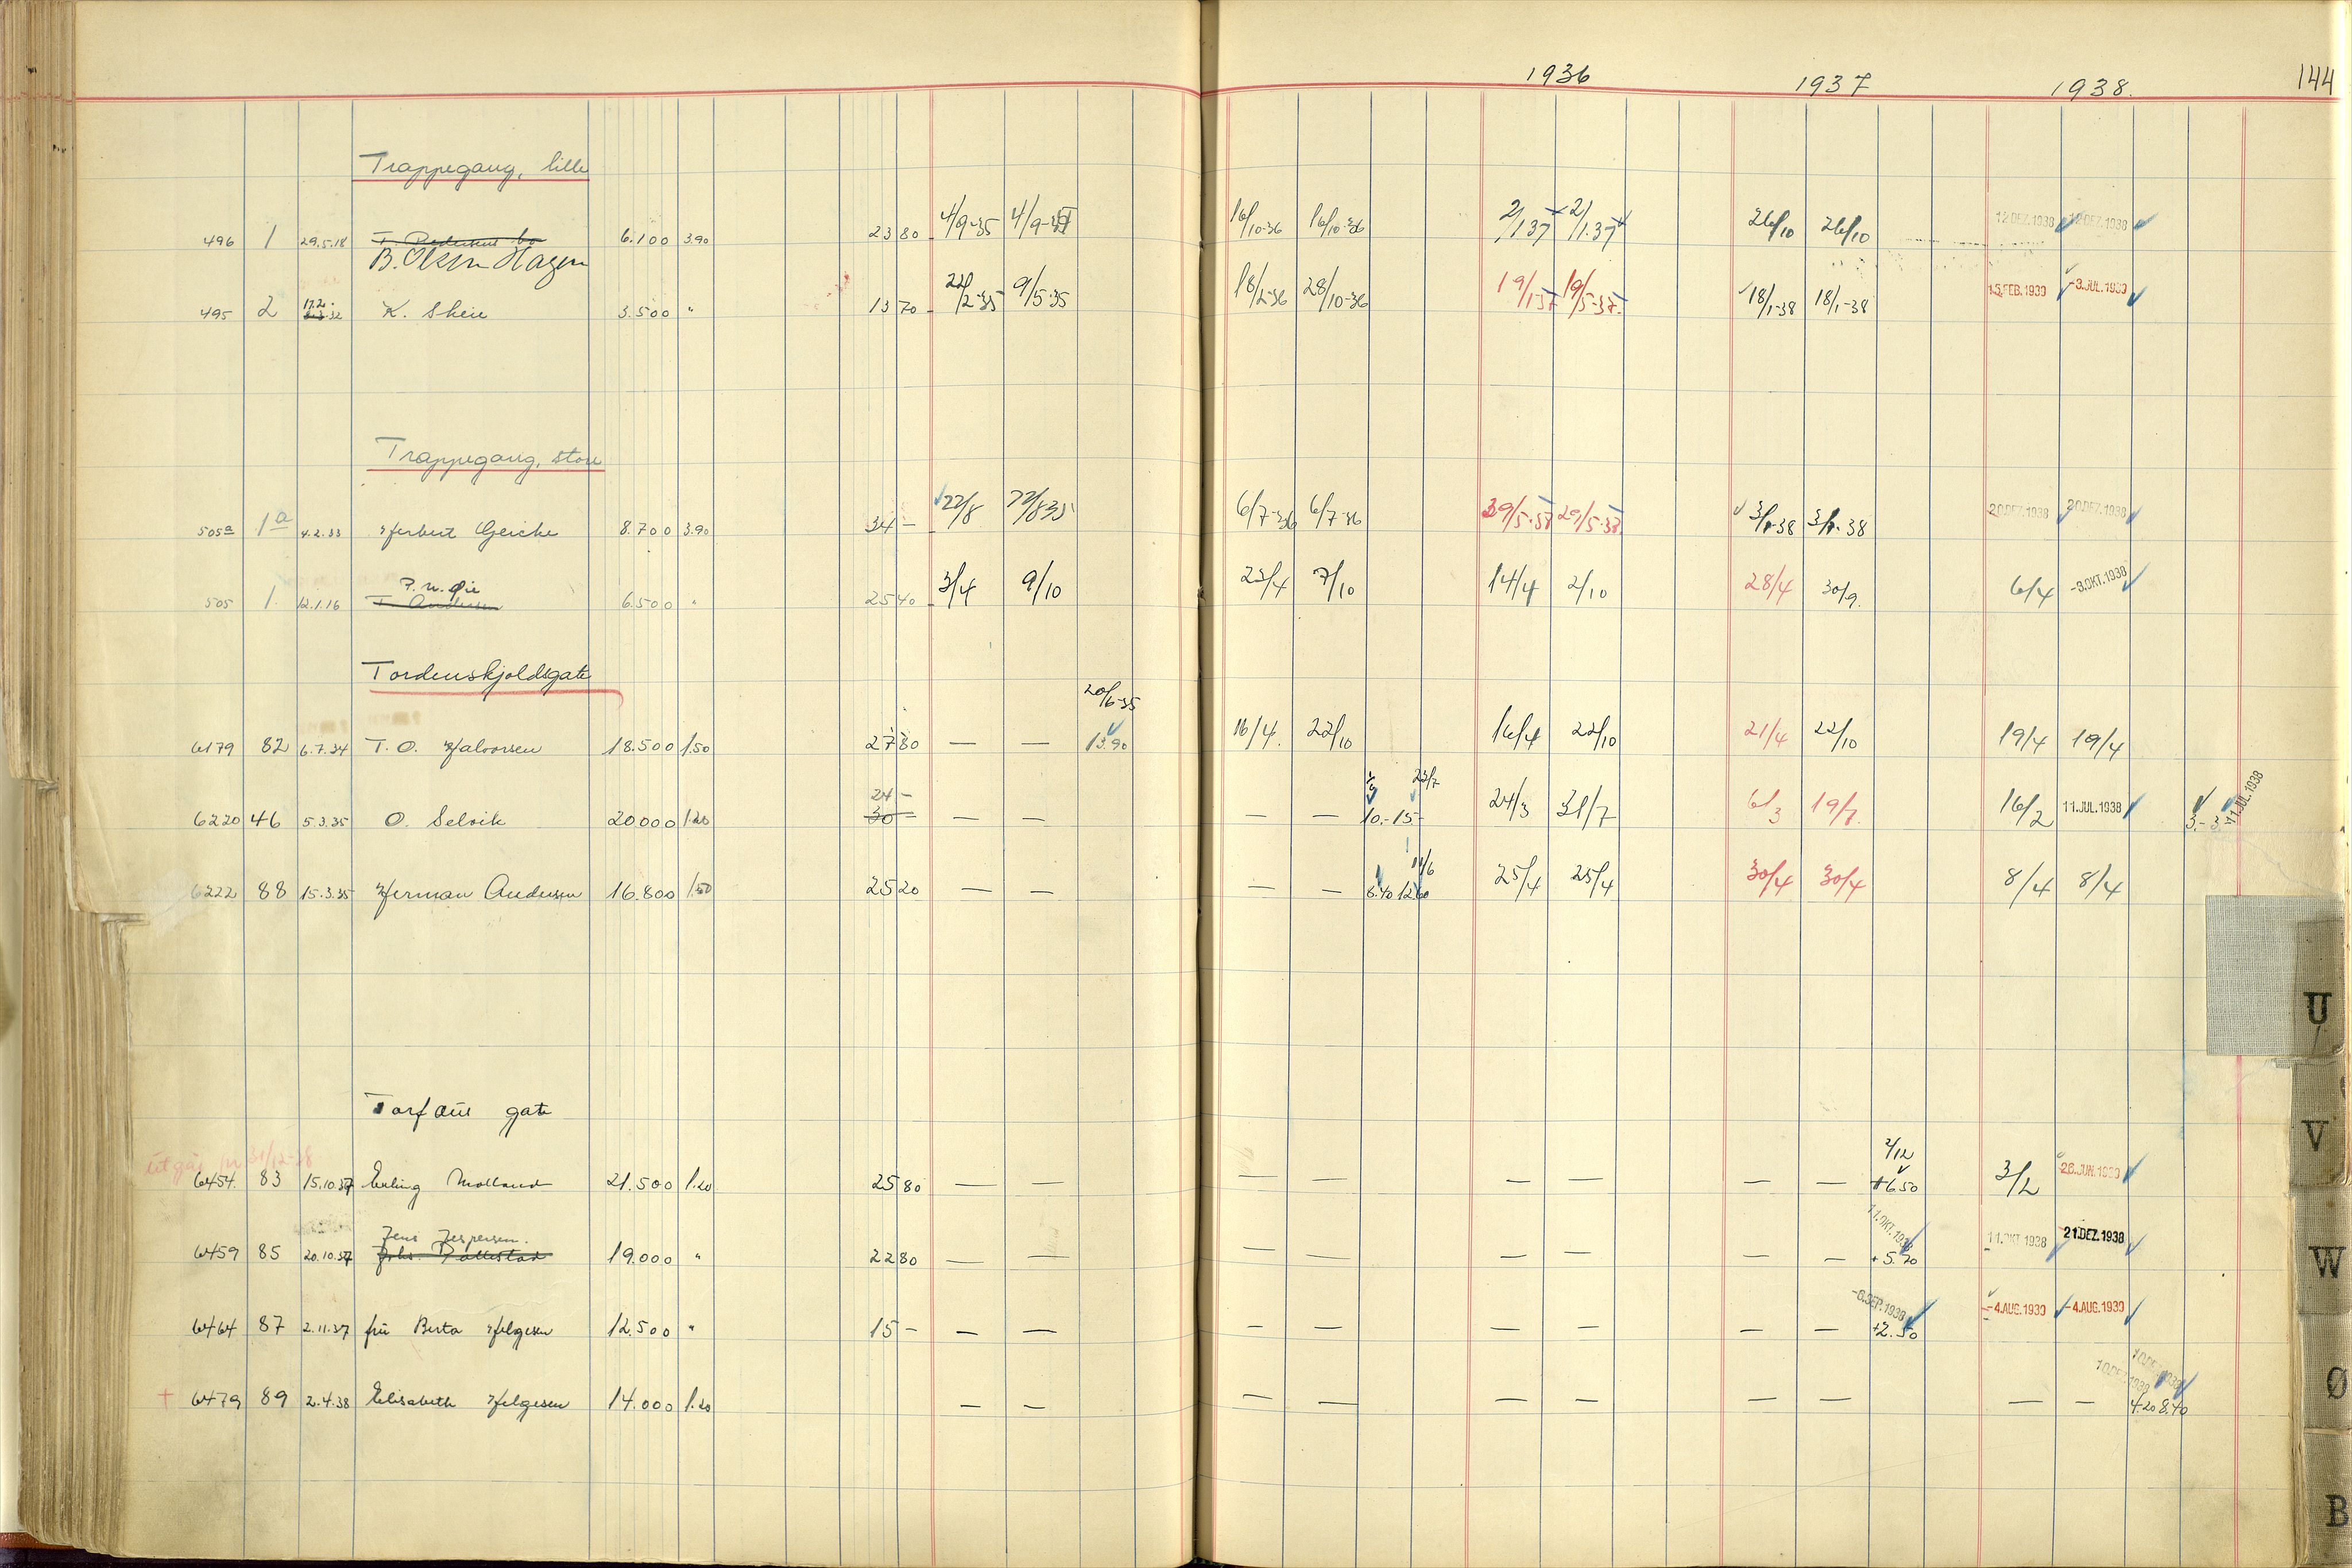 1936 1937 1938. 144
Trappegang, lille
496 1 29.5.18 6.100 3.90 23 80 4/9-35 4/9-35 16/10-36 16/10-36 2/1 37 2/1.37 26/10 26/10 12.DEZ.1938 12.DEZ.1938
B. Olsen Hagen
495 2 17.2. 32 K. Skeie 3.500 " 13 70 22/2-35 9/5-35 18/2-36 28/10-36 19/1-37 19/5-37. 18/1-38 18/1-38 15.FEB.1939 -3.JUL.1939
Trappegang, store
505a 1a 4.2.33 Herbert Gericke 8.700 3.90 34 - 22/8 22/8 35 6/7-36 6/7-36 29/5-37 29/5-37 3/1-38 3/1-38 20.DEZ.1938 20.DEZ.1938
P.N. Øie
505 1 12.1.16 T. Andersen 6.500 " 25 40 3/4 9/10 23/4 7/10 14/4 2/10 28/4 30/9. 6/4 -3.OKT.1938
Tordenskjoldsgate
20/6-35
6179 82 6.7.34 T. O. Halvorsen 18.500 1.50 27 80 — — 13.90 16/4. 22/10 16/4 22/10 21/4 22/10 19/4 19/4
24 - 23/7
6220 46 5.3.35 O. Selvik 20.000 1.20 30 - — — — — 10.- 15.- 24/3 31/7 6/3 19/7. 16/2 11.JUL.1938 3.- 3.- 11.JUL.1938
11/6
6222 88 15.3.35 Herman Andersen 16.800 1.50 25 20 — — — — 8.40 12.60 25/4 25/4 30/4 30/4 8/4 8/4
Torfæus gate
Utgår pr 31/12-38 2/12
6454 83 15.10.37 Erling Molland 21.500 1.20 25 80 — — — — — — — — +6.50 3/2 28.JUN.1939
Jens Jespersen. 11.OKT.1938
6459 85 20.10.37 19.000 " 22 80 — — — — — — — — +5.70 11.OKT.1938 21.DEZ.1938
-6.SEP.1938
6464 87 2.11.37 frü Berta Helgesen 12.500 " 15 - — — — — — — — — +2.50 -4.AUG.1939 -4.AUG.1939
10.DEZ.1938 10.DEZ.1938
+ 6479 89 2.4.38 Elisabeth Helgesen 14.000 1.20 — — — — — — — — — — 4.20 8.40
U
V
W
Ø
B